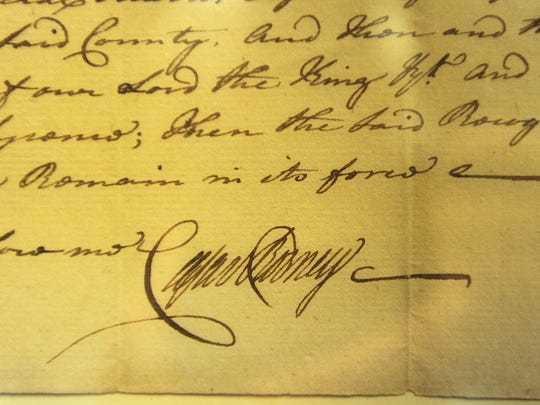 said County. And then and th
f our Lord the King &c. and
then the said Recog
Remain in its force
fore me Caesar Rodney